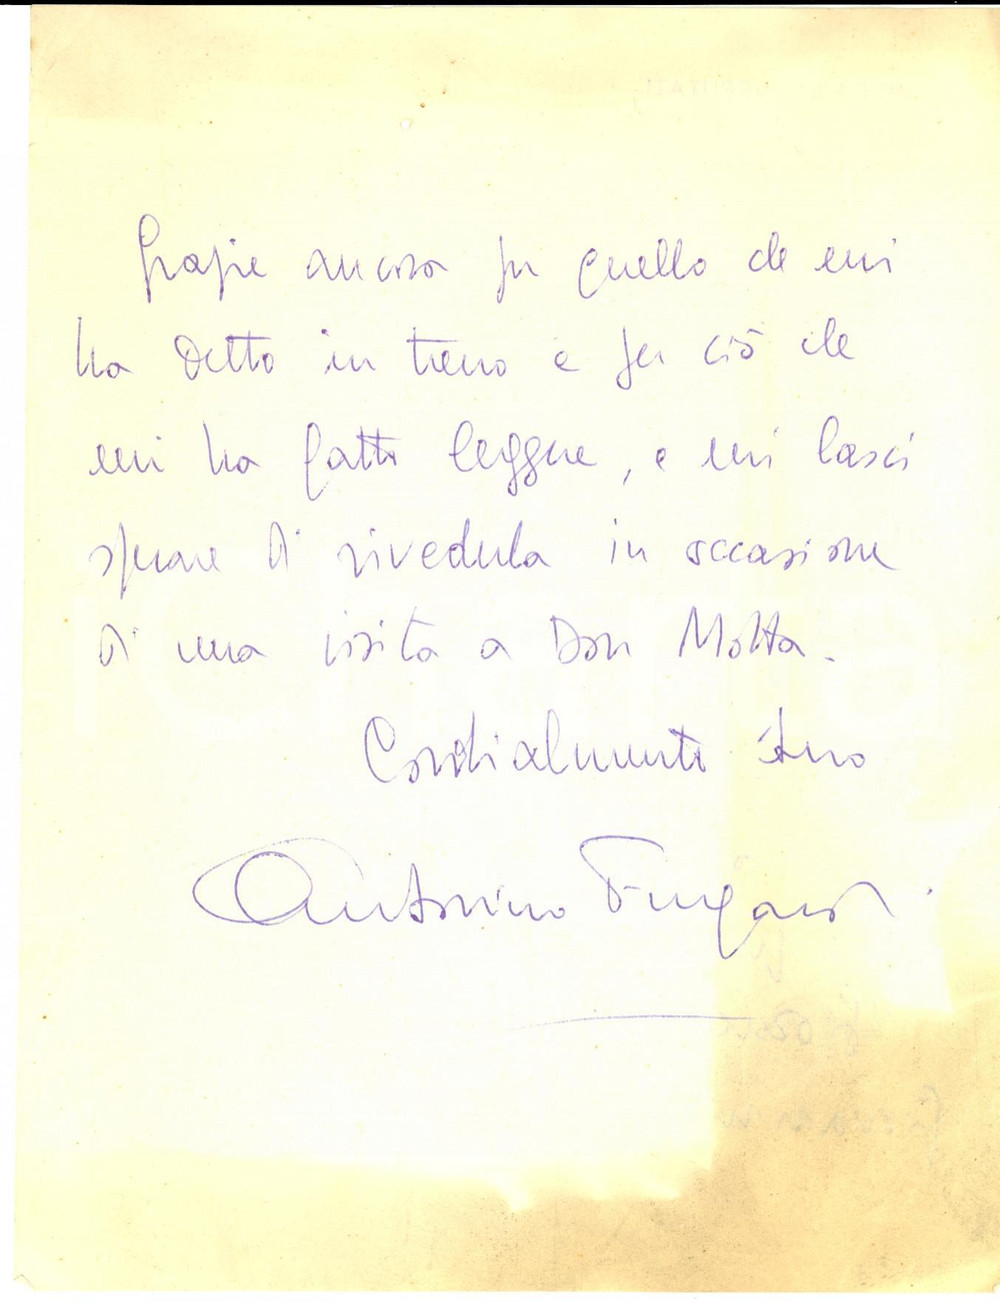 Grazie ancora per quello che mi
ha detto in treno e per ciò che
mi ha fatto leggere, e mi lasci
sperare di rivederla in occasione
di una visita a Don Motta.
Cordialmente suo
Antonino